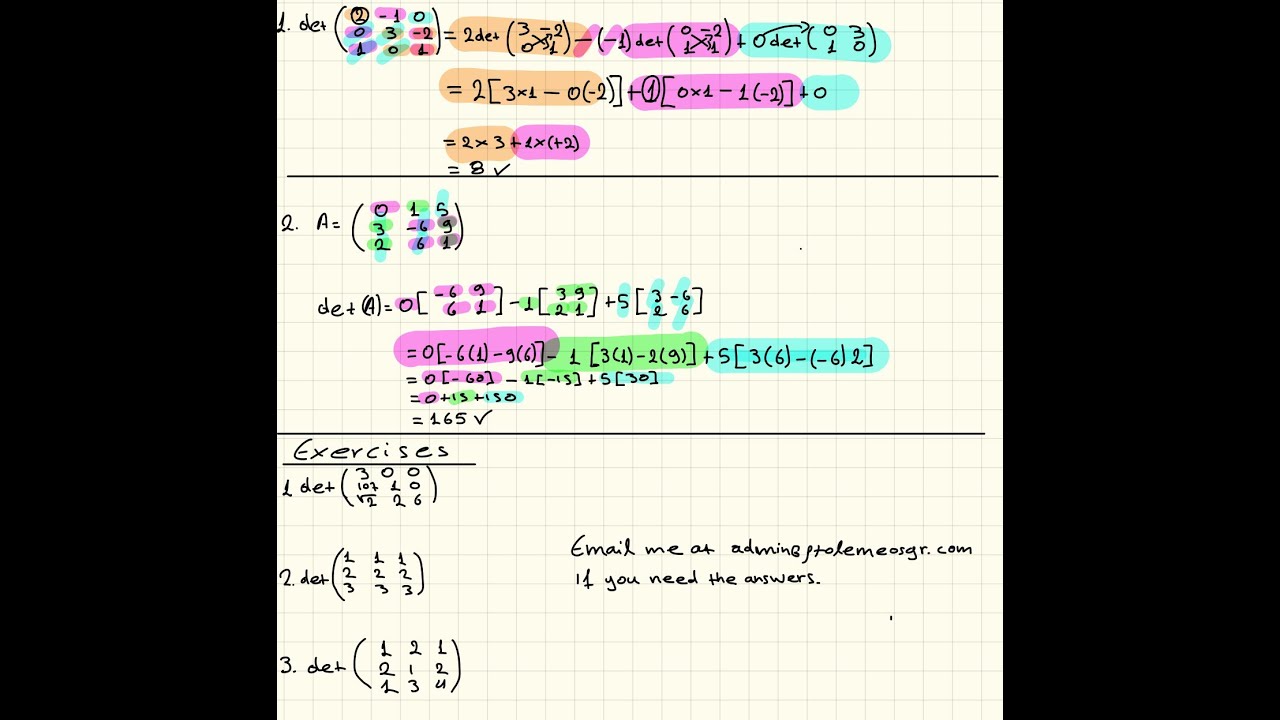 1. det (2 -1 0
0 3 -2
1 0 1) = 2det (3 -2
0 1) - (-1)det (0 -2
1 1) + 0det (0 3
1 0)
= 2[3×1 - 0(-2)] + 1[0×1 - 1(-2)] + 0
= 2×3 + 1×(+2)
= 8 ✓
2. A= (0 1 5
3 -6 9
2 6 1)
det(A) = 0[-6 9
6 1] - 1[3 9
2 1] + 5[3 -6
2 6]
= 0[-6(1) - 9(6)] - 1[3(1) - 2(9)] + 5[3(6) - (-6)2]
= 0[-60] - 1[-15] + 5[30]
= 0+15+150
= 165 ✓
Exercises
1 det (3 0 0
107 1 0
√2 2 6)
2. det (1 1 1
2 2 2
3 3 3)
Email me at admin@ptolemeosgr.com
if you need the answers.
3. det (1 2 1
2 1 2
1 3 4)